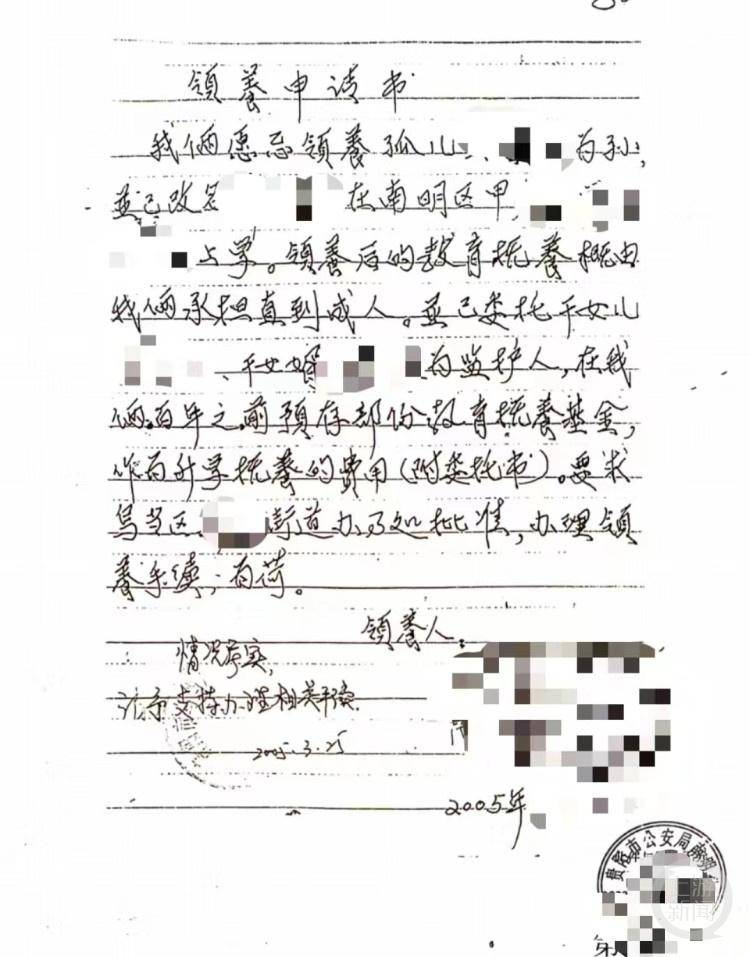 领養申请书
我俩愿意领養孤儿 为孙,
並已改名 在南明区甲
上学。领養后的教育抚養概由
我俩承担直到成人。並已委托干女儿
、干女婿 为监护人,在我
俩百年之前預存部份教育抚養基金,
作为升学抚養的费用(附委托书)。要求
乌当区 街道办事处批准,办理领
養手续;为荷。
领養人:
情况属实,
请予支持办理相关手续.
2005.3.25
2005年
贵阳市公安局南明
上游新闻
第